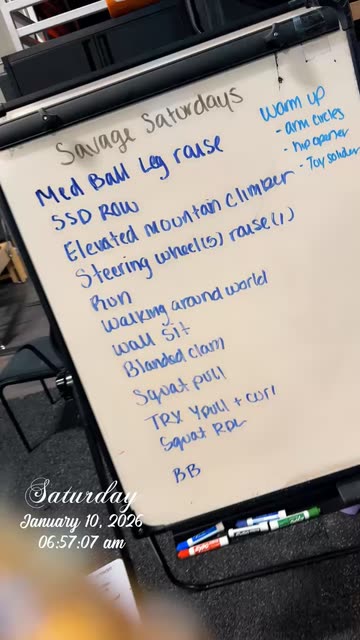 Savage Saturdays
Med Ball Leg raise
SSD Row
Elevated mountain climber
Steering wheel(5) raise(1)
Run
Walking around world
Wall Sit
Blanded clam
Squat pull
TRX Ypull + curl
Squat RDL
BB
Warm up
- arm circles
- hip opener
- Toy solider
Saturday
January 10, 2026
06:57:07 am